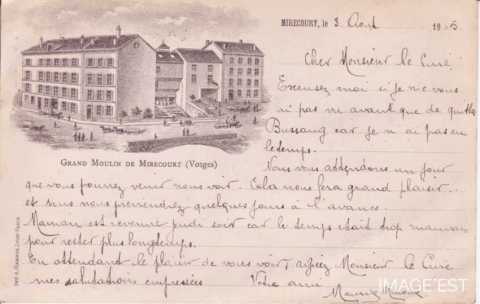 MIRECOURT, le 3 Août 1906
Cher Monsieur le Curé
Excusez moi si je ne vous
ai pas vu avant que de quitter
Bussang car je n'ai pas eu
le temps.
GRAND MOULIN DE MIRECOURT (Vosges)
Nous vous attendons un jour
que vous pourrez venir nous voir. Cela nous fera grand plaisir
et nous prévien­drez quelques jours à l'avance.
Maman est revenue jeudi soir car le temps était trop mauvais
pour rester plus longtemps.
En attendant le plaisir de vous voir, agréez Monsieur le Curé
mes salutations empressées
Votre ami
IMAGE'EST